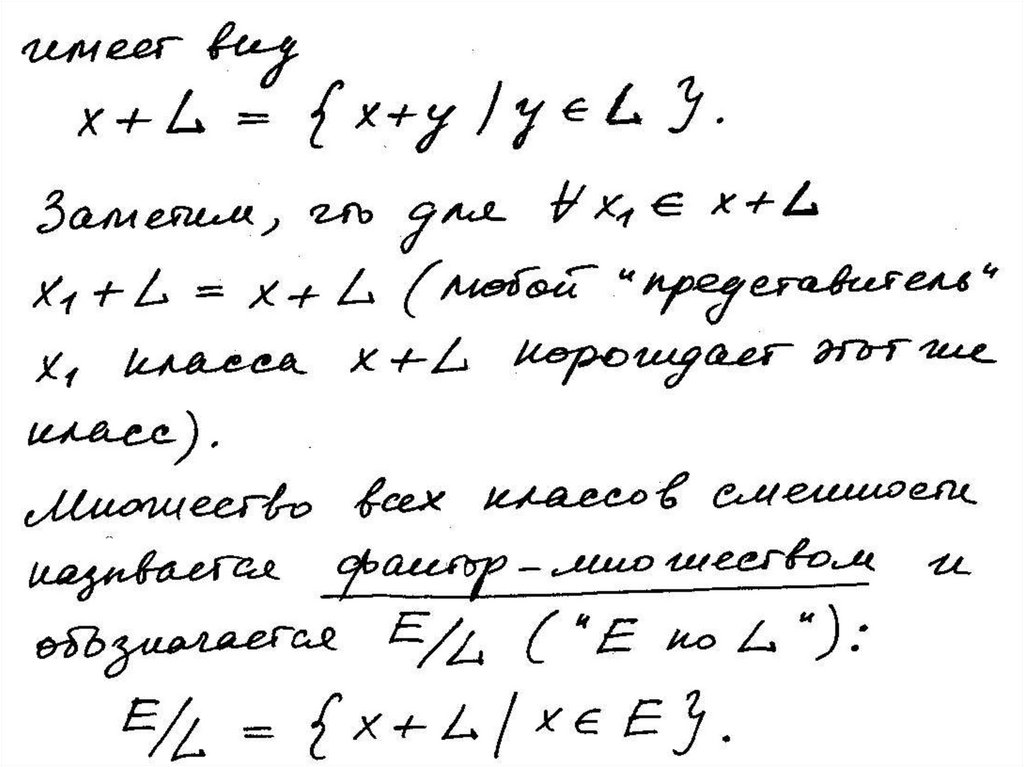 имеет вид
x + L = { x+y / y ∈ L }.
Заметим, что для ∀ x₁ ∈ x + L
x₁ + L = x + L (любой "представитель"
x₁ класса x + L порождает этот же
класс).
Множество всех классов смежности
называется фактор-множеством и
обозначается E/L ("E по L"):
E/L = { x + L / x ∈ E }.